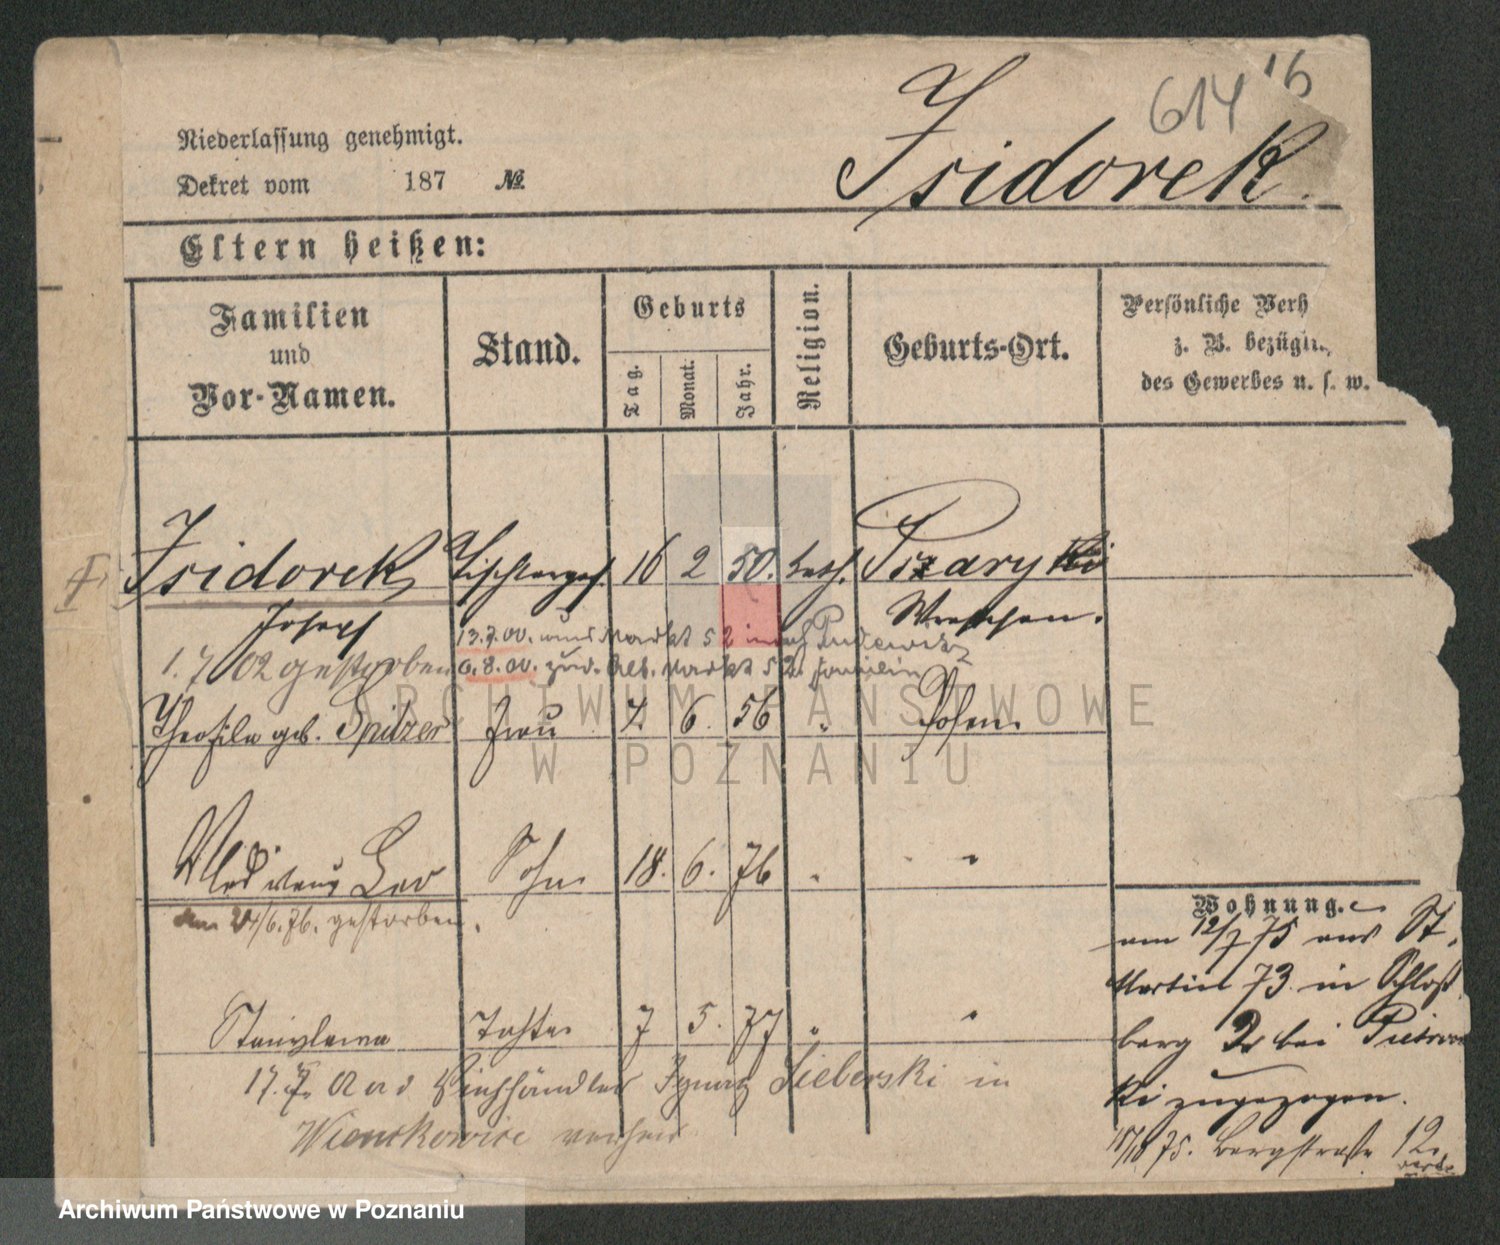 614 16
Isidorek.
Niederlassung genehmigt.
Dekret vom 187 №
Eltern heißen:
Familien und Vor-Namen.
Stand.
Geburts
Tag.
Monat.
Jahr.
Religion.
Geburts-Ort.
Persönliche Verh
z. B. bezügl.
des Gewerbes u. s. w.
Isidorek, Tischlerges. 16 2 50. kath.
Josef Wreschen.
13.7.00. Markt 52 nach Pudewitz
1.7 02 gestorben 6.8.00. zur. Alt. Markt 52 Familie
Theofila geb. Spitzer Frau 7. 6. 56 " Posen
Leo Sohn 18. 6. 76 " "
am 24/6.76. gestorben.
Stanislawa Tochter 7 5. 77 " "
17. Viehhändler Ignatz Sieberski in
Wohnung.
am 12/7 75 aus St.
Martin 73 in Schloß
berg 2 bei
ki zugezogen.
75. Bergstraße 12.
ARCHIWUM PAŃSTWOWE
W POZNANIU
Archiwum Państwowe w Poznaniu